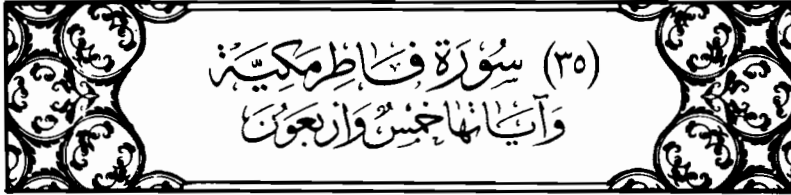 (٣٥) سُورَة فَاطِر مَكِيَّة
وَآيَاتُهَا خَمْسٌ وَارْبَعُونَ